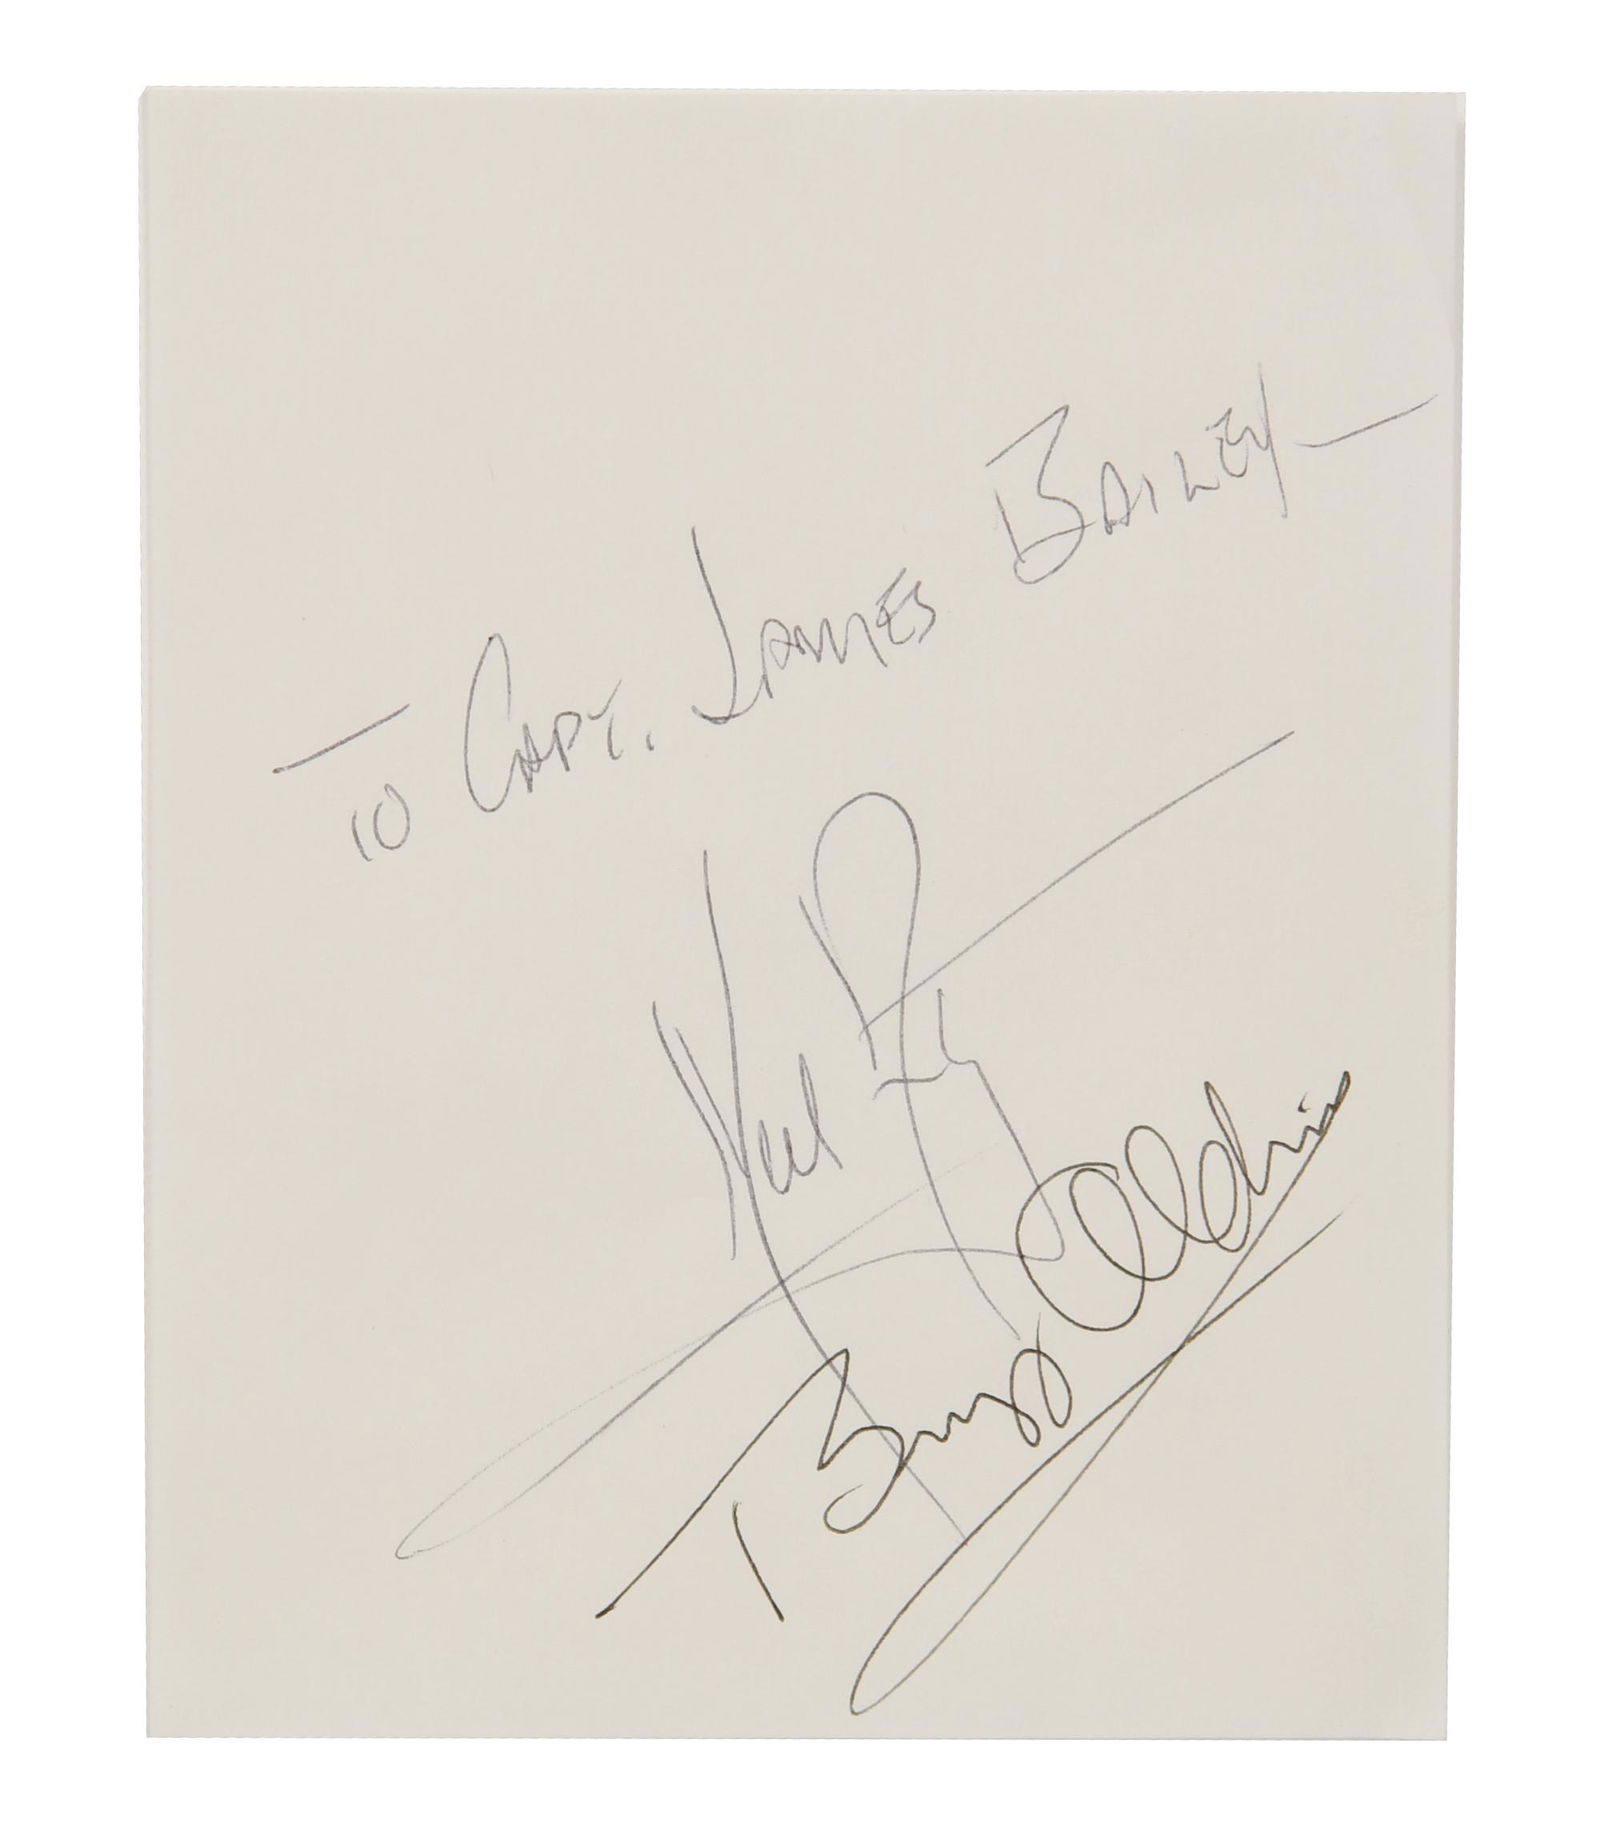 TO CAPT. JAMES BAILEY —
Neil
Buzz Aldrin